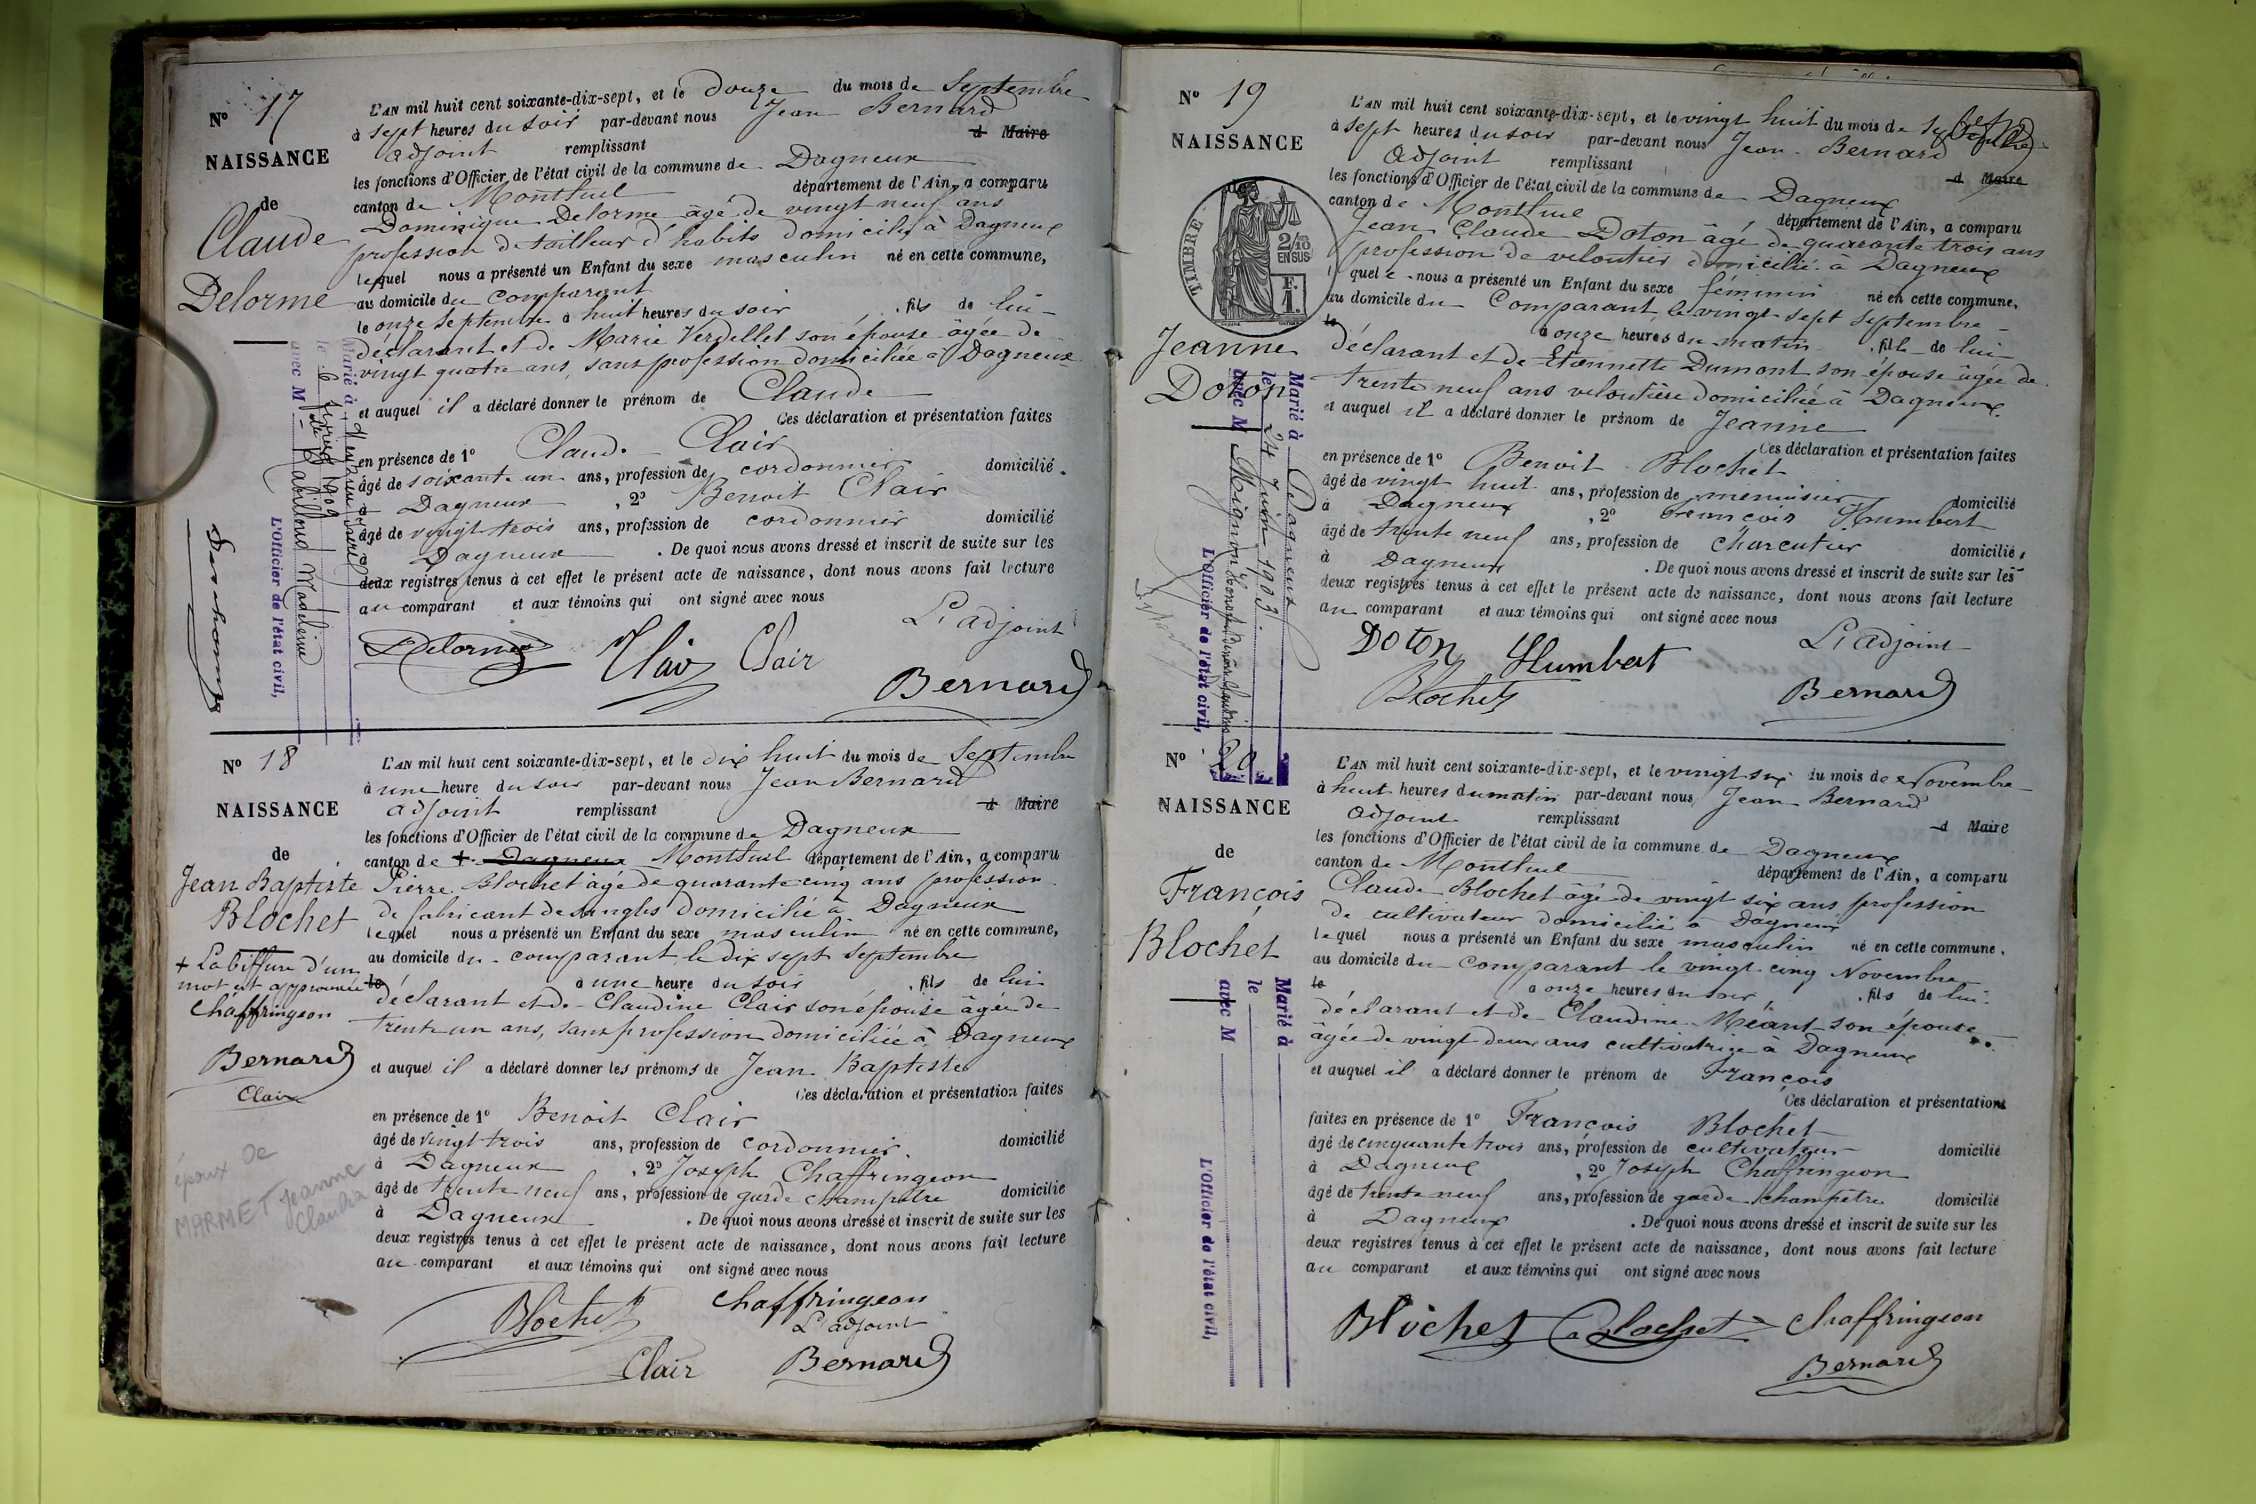 N° 17
NAISSANCE
de
Claude
Delorme
L'AN mil huit cent soixante-dix-sept, et le douze du mois de Septembre
à sept heures du soir par-devant nous Jean Bernard
adjoint remplissant d Maire
les fonctions d'Officier de l'état civil de la commune de Dagneux
canton de Montluel département de l'Ain, a comparu
Dominique Delorme âgé de vingt neuf ans
profession de tailleur d'habits domicilié à Dagneux
lequel nous a présenté un Enfant du sexe masculin né en cette commune,
au domicile du comparant
le onze Septembre à huit heures du soir, fils de lui
déclarant et de Marie Verdellet son épouse âgée de
vingt quatre ans, sans profession domiciliée à Dagneux
et auquel il a déclaré donner le prénom de Claude
Ces déclaration et présentation faites
en présence de 1° Claude Clair
âgé de soixante un ans, profession de cordonnier domicilié
à Dagneux, 2° Benoit Clair
âgé de vingt trois ans, profession de cordonnier domicilié
à Dagneux. De quoi nous avons dressé et inscrit de suite sur les
deux registres tenus à cet effet le présent acte de naissance, dont nous avons fait lecture
au comparant et aux témoins qui ont signé avec nous
L'adjoint
Delorme Clair Clair
Bernard
Marié à
le 6 1909
avec M Madeleine
L'Officier de l'état civil,
N° 18
NAISSANCE
de
Jean Baptiste
Blochet
+ La biffure d'un
mot est approuvée
Chaffringeon
Bernard
Clair
époux de
MARMET Jeanne
Claudia
L'AN mil huit cent soixante-dix-sept, et le dix huit du mois de Septembre
à une heure du soir par-devant nous Jean Bernard
adjoint remplissant d Maire
les fonctions d'Officier de l'état civil de la commune de Dagneux
canton de + Dagneux Montluel département de l'Ain, a comparu
Pierre Blochet âgé de quarante cinq ans profession
de fabricant de sangles domicilié à Dagneux
lequel nous a présenté un Enfant du sexe masculin né en cette commune,
au domicile du comparant le dix sept Septembre
le à une heure du soir, fils de lui
déclarant et de Claudine Clair son épouse âgée de
trente un ans, sans profession domiciliée à Dagneux
et auquel il a déclaré donner les prénoms de Jean Baptiste
Ces déclaration et présentation faites
en présence de 1° Benoit Clair
âgé de vingt trois ans, profession de cordonnier domicilié
à Dagneux, 2° Joseph Chaffringeon
âgé de trente neuf ans, profession de garde champêtre domicilié
à Dagneux. De quoi nous avons dressé et inscrit de suite sur les
deux registres tenus à cet effet le présent acte de naissance, dont nous avons fait lecture
au comparant et aux témoins qui ont signé avec nous
Blochet Chaffringeon
L'adjoint
Clair Bernard
N° 19
NAISSANCE
de
TIMBRE
2/10
EN SUS
F.
1.
Jeanne
Doton
L'AN mil huit cent soixante-dix-sept, et le vingt huit du mois de Septembre
à sept heures du soir par-devant nous Jean Bernard
adjoint remplissant d Maire
les fonctions d'Officier de l'état civil de la commune de Dagneux
canton de Montluel département de l'Ain, a comparu
Jean Claude Doton âgé de quarante trois ans
profession de veloutier domicilié à Dagneux
lequel nous a présenté un Enfant du sexe féminin né en cette commune,
au domicile du Comparant le vingt-sept Septembre
le à onze heures du matin, fille de lui
déclarant et de Etiennette Dumont son épouse âgée de
trente neuf ans veloutière domiciliée à Dagneux
et auquel il a déclaré donner le prénom de Jeanne
Ces déclaration et présentation faites
en présence de 1° Benoit Blochet
âgé de vingt huit ans, profession de menuisier domicilié
à Dagneux, 2° François Humbert
âgé de trente neuf ans, profession de charcutier domicilié
à Dagneux. De quoi nous avons dressé et inscrit de suite sur les
deux registres tenus à cet effet le présent acte de naissance, dont nous avons fait lecture
au comparant et aux témoins qui ont signé avec nous
Doton Humbert L'adjoint
Blochet Bernard
Marié à Dagneux
le 24 Juin 1903.
avec M Mignon
L'Officier de l'état civil,
N° 20
NAISSANCE
de
François
Blochet
L'AN mil huit cent soixante-dix-sept, et le vingt six du mois de Novembre
à huit heures du matin par-devant nous Jean Bernard
adjoint remplissant d Maire
les fonctions d'Officier de l'état civil de la commune de Dagneux
canton de Montluel département de l'Ain, a comparu
Claude Blochet âgé de vingt six ans profession
de cultivateur domicilié à Dagneux
lequel nous a présenté un Enfant du sexe masculin né en cette commune,
au domicile du Comparant le vingt cinq Novembre
le à onze heures du soir, fils de lui
déclarant et de Claudine Méant son épouse
âgée de vingt deux ans cultivatrice à Dagneux
et auquel il a déclaré donner le prénom de François
Ces déclaration et présentation
faites en présence de 1° François Blochet
âgé de cinquante trois ans, profession de cultivateur domicilié
à Dagneux, 2° Joseph Chaffringeon
âgé de trente neuf ans, profession de garde champêtre domicilié
à Dagneux. De quoi nous avons dressé et inscrit de suite sur les
deux registres tenus à cet effet le présent acte de naissance, dont nous avons fait lecture
au comparant et aux témoins qui ont signé avec nous
Blochet Blochet Chaffringeon
Bernard
Marié à
le
avec M
L'Officier de l'état civil,